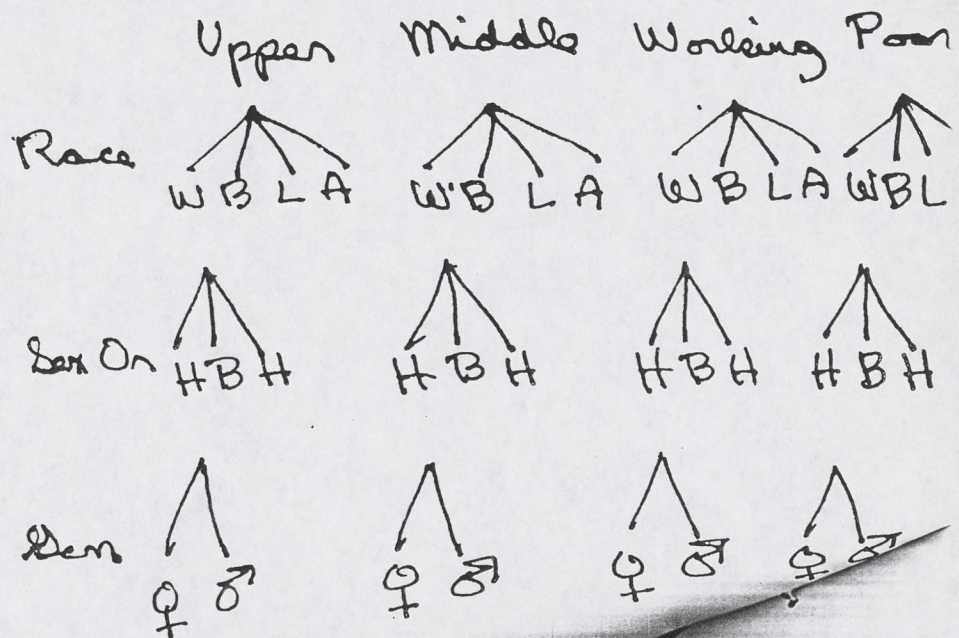 Upper Middle Working Poor
Race
W B L A W B L A W B L A W B L
Sex Or H B H H B H H B H H B H
Gen
♀ ♂ ♀ ♂ ♀ ♂ ♀ ♂